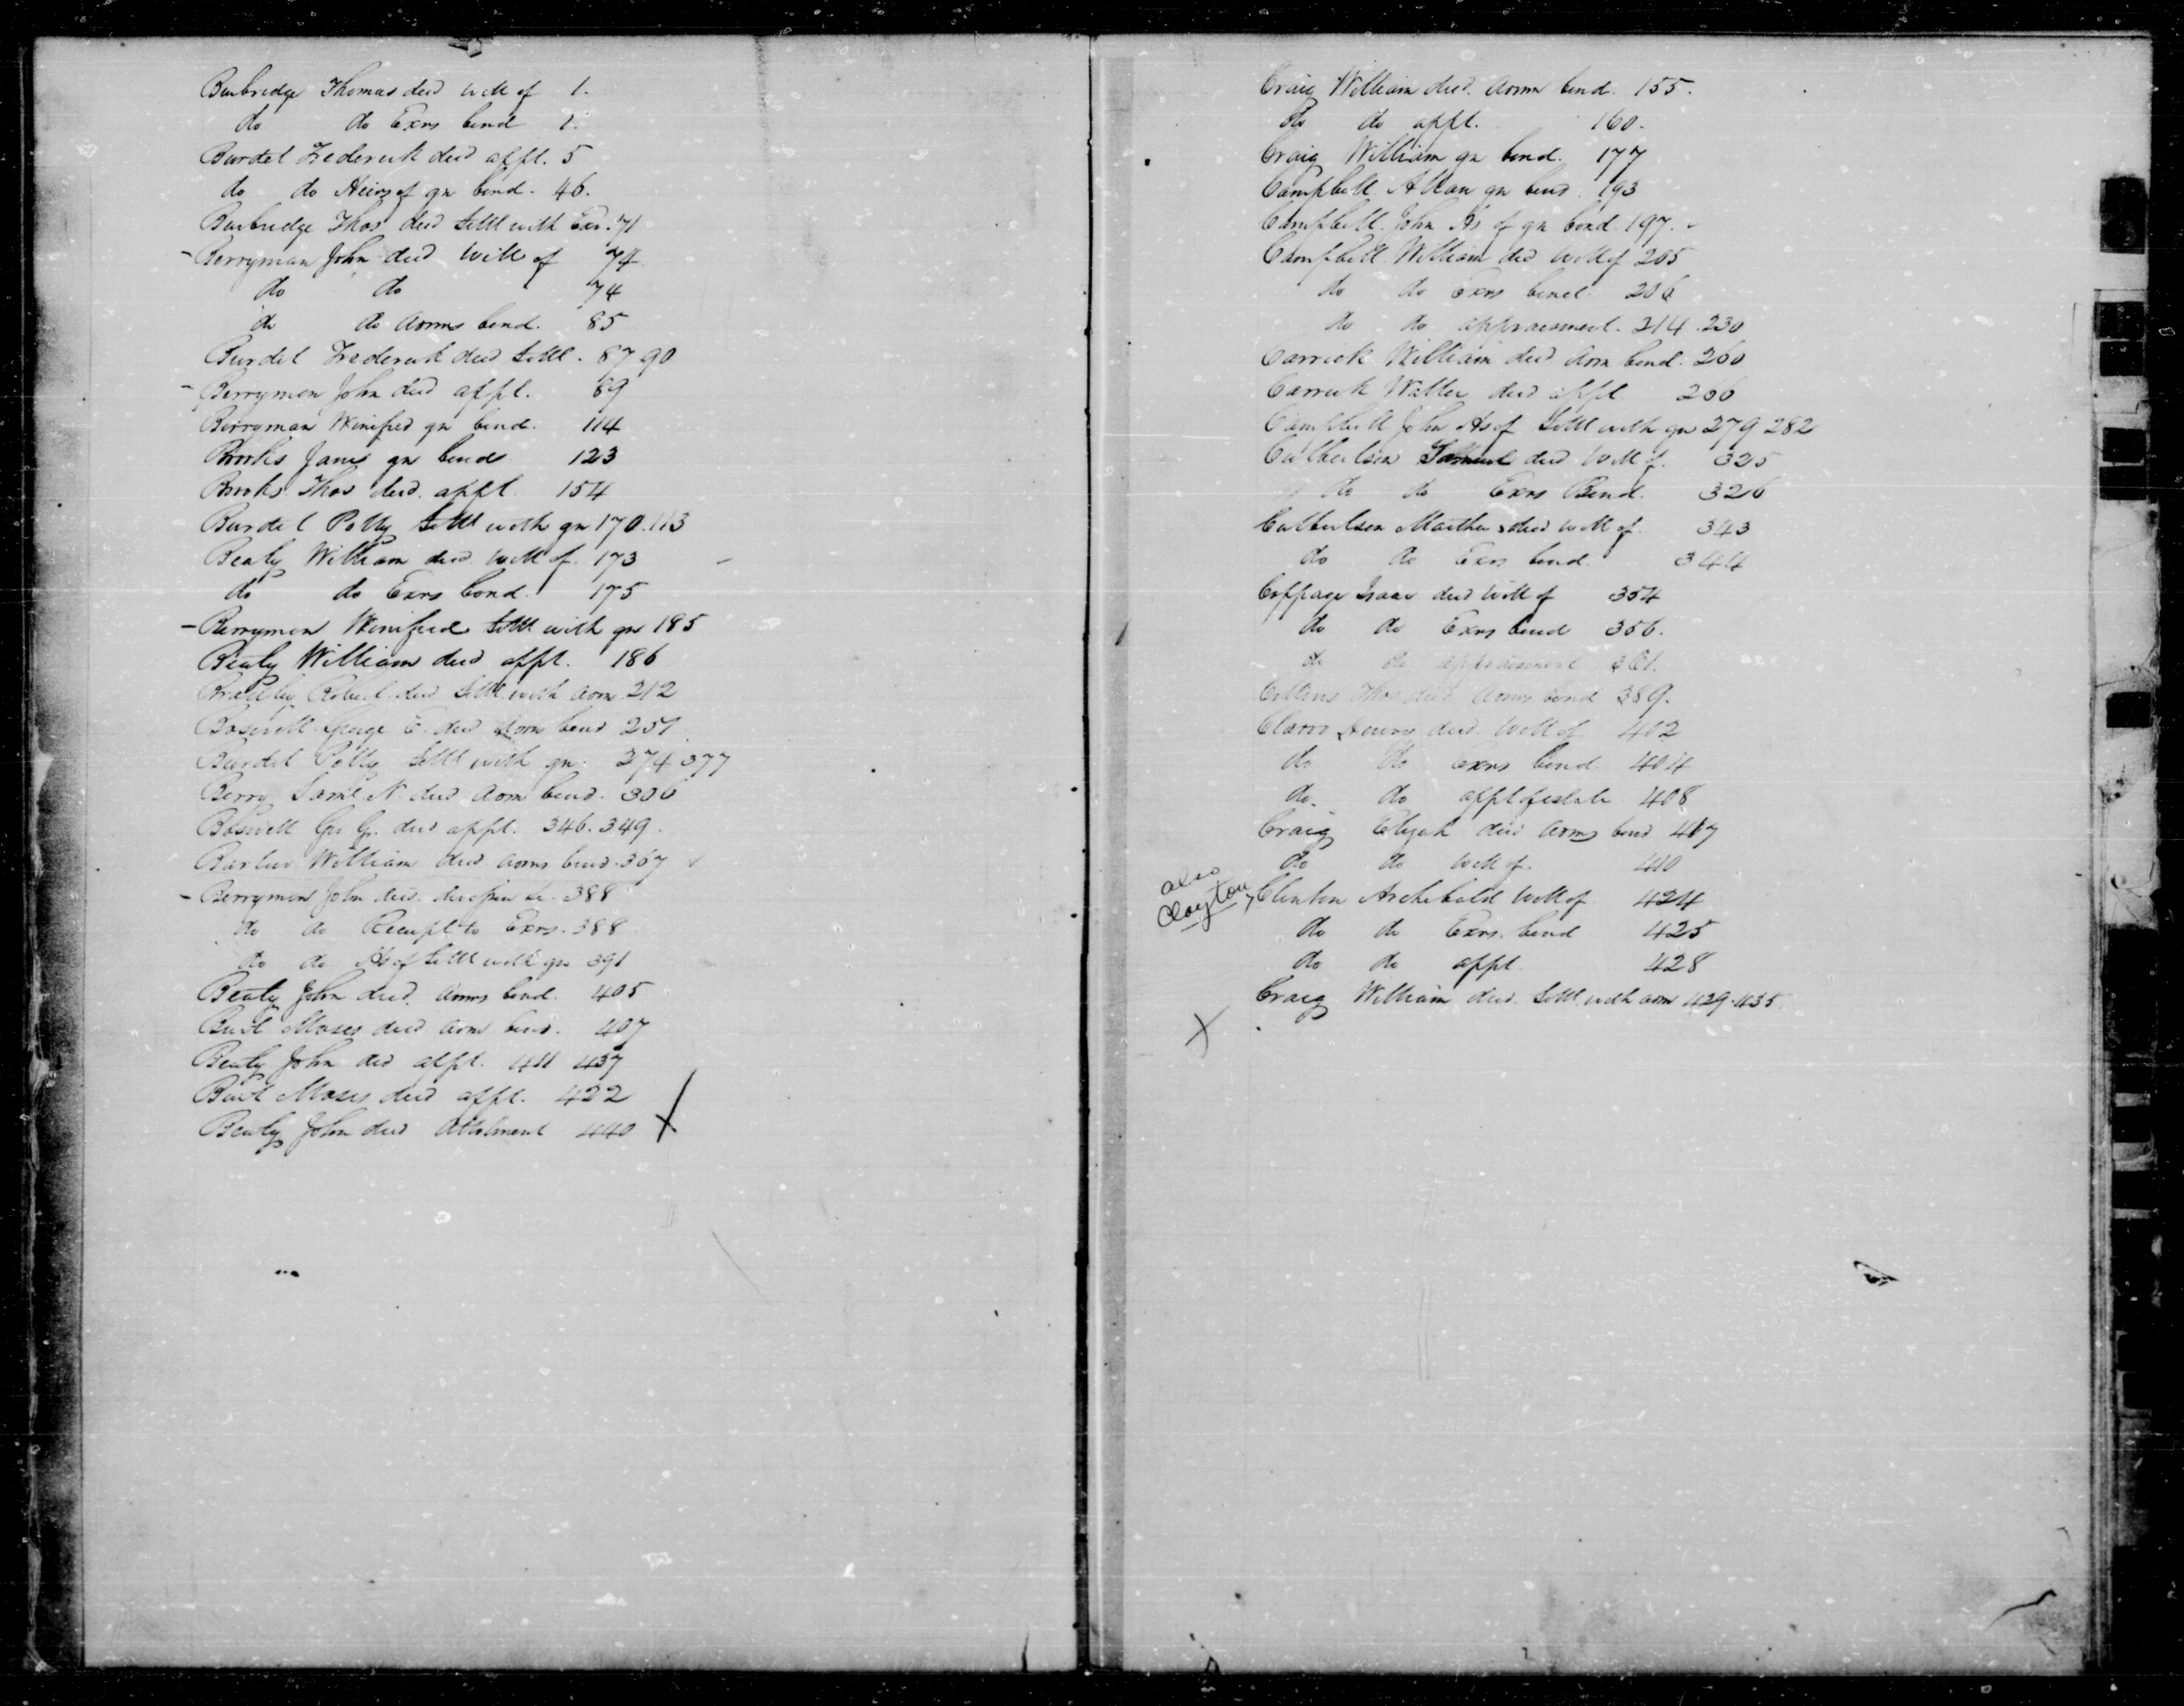 Burbridge Thomas decd will of 1.
do do Exrs bond 1.
Burdet Frederick decd appt. 5
do do Heirs of gn bond. 46.
Burbridge Thos decd Settl with Exr. 71
- Berryman John decd will of 74
do do 74
do do Admr bond. 85
Burdet Frederick decd Settl. 87 90
- Berryman John decd appt. 89
Berryman Winifred gn bond. 114
Brooks Janes gn bonds 123
Brooks Thos decd. appt. 154
Burdet Polly Settl with gn 170. 113
Beaty William decd will of. 173
do do Exrs bond. 175
- Berryman Winifred Settl with gn 185
Beaty William decd appt. 186
Bradley Robert decd Settl with adm. 212
Boswell George G. decd Adm bond 257
Burdet Polly Settl with gn. 274 377
Berry Saml N. decd Adm bond. 306
Boswell Geo G. decd appt. 346. 349.
Barlow William decd Admr bond. 367
- Berryman John decd. 388
do do Receipt to Exrs. 388
do do Hs of Settl with gn 391
Beaty John decd. Admr bond. 405
Bust Moses decd Adm bond. 407
Beaty John decd appt. 411 437
Bust Moses decd appt. 422
Beaty John decd Allotment 440 X
Craig William decd. Admr bond. 155.
do do appt. 160.
Craig William gn bond. 177
Campbell Allan gn bond. 193
Campbell John Hs of gn bond. 197.
Campbell William decd will of 205
do do Exrs bond. 206
do do appraisment. 214. 230
Carrick William decd Adm bond. 260
Carrick Walter decd appt 266
Campbell John Hs of Settl with gn 279 282
Culbertson Samuel decd will of. 325
do do Exrs Bond. 326
Culbertson Martha decd will of. 343
do do Exrs bond. 344
Coppage Isaac decd will of 354
do do Exrs bond 356.
do do appraisment 361.
Collins Thos decd Admr bond 389.
Henry decd. will of. 402
do do Exrs bond. 404
do. do appt of estate 408
Craig Elijah decd Admr bond 407
do do will of. 410
also Clayton
Clinton Archibald will of 424
do do Exrs. bond 425
do do appt. 428
Craig William decd. Settl. with adm 429. 435.
X